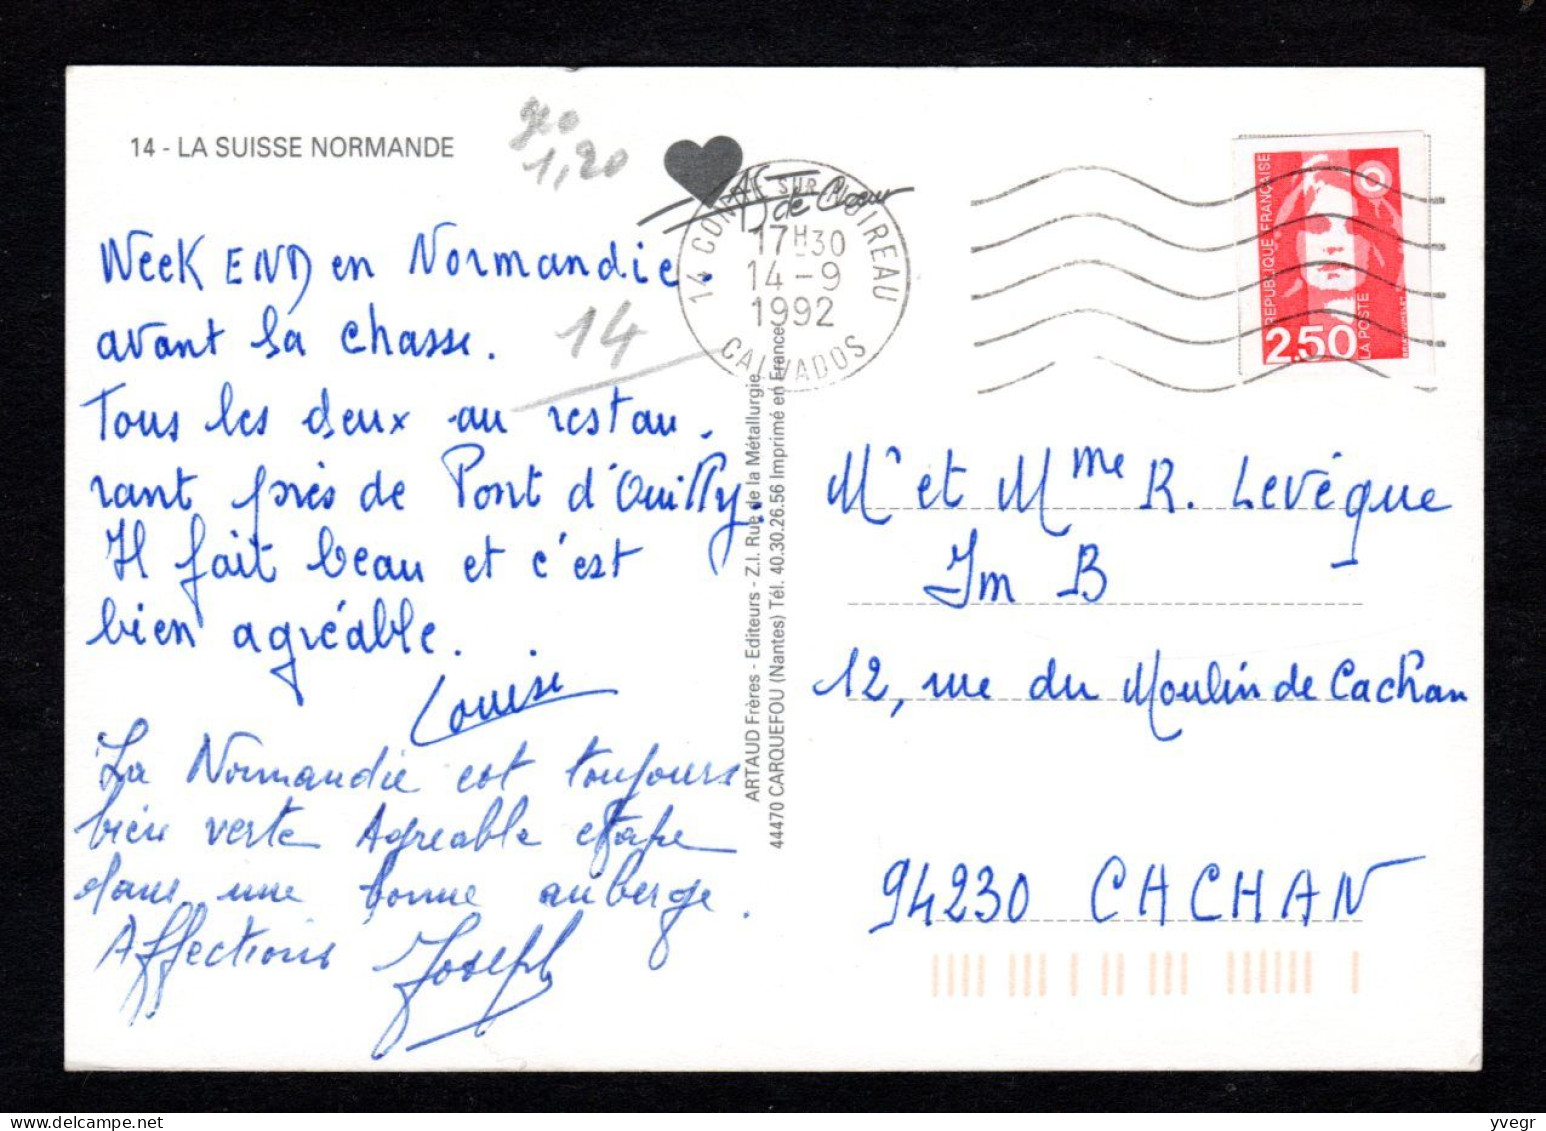 14 - LA SUISSE NORMANDE
geo
1,20
14
Week END en Normandie.
avant la chasse.
Tous les deux au restau.
rant près de Pont d'Ouilly.
Il fait beau et c'est
bien agréable.
Louise
La Normandie est toujours
bien verte Agreable etape
dans une bonne auberge.
Affections Joseph
AS de Cœur
14 CONDE SUR NOIREAU
17H30
14-9
1992
CALVADOS
ARTAUD Frères - Editeurs - Z.I. Rue de la Métallurgie
44470 CARQUEFOU (Nantes) Tél. 40.30.26.56 Imprimé en France
REPUBLIQUE FRANÇAISE
2,50
LA POSTE
Mr et Mme R. Levêque
Im B
12, rue du Moulin de Cachan
94230 CACHAN
yvegr
delcampe.net